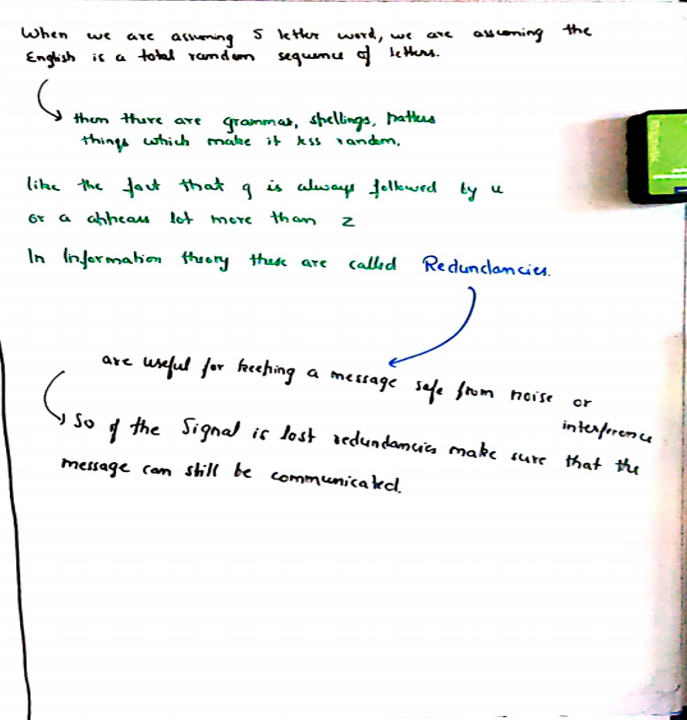 When we are assuming 5 letter word, we are assuming the
English is a total random sequence of letters.
then there are grammar, spellings, patterns
things which make it less random.
like the fact that q is always followed by u
or a appears lot more than z
In Information theory these are called Redundancies.
are useful for keeping a message safe from noise or
interference
So if the Signal is lost redundancies make sure that the
message can still be communicated.